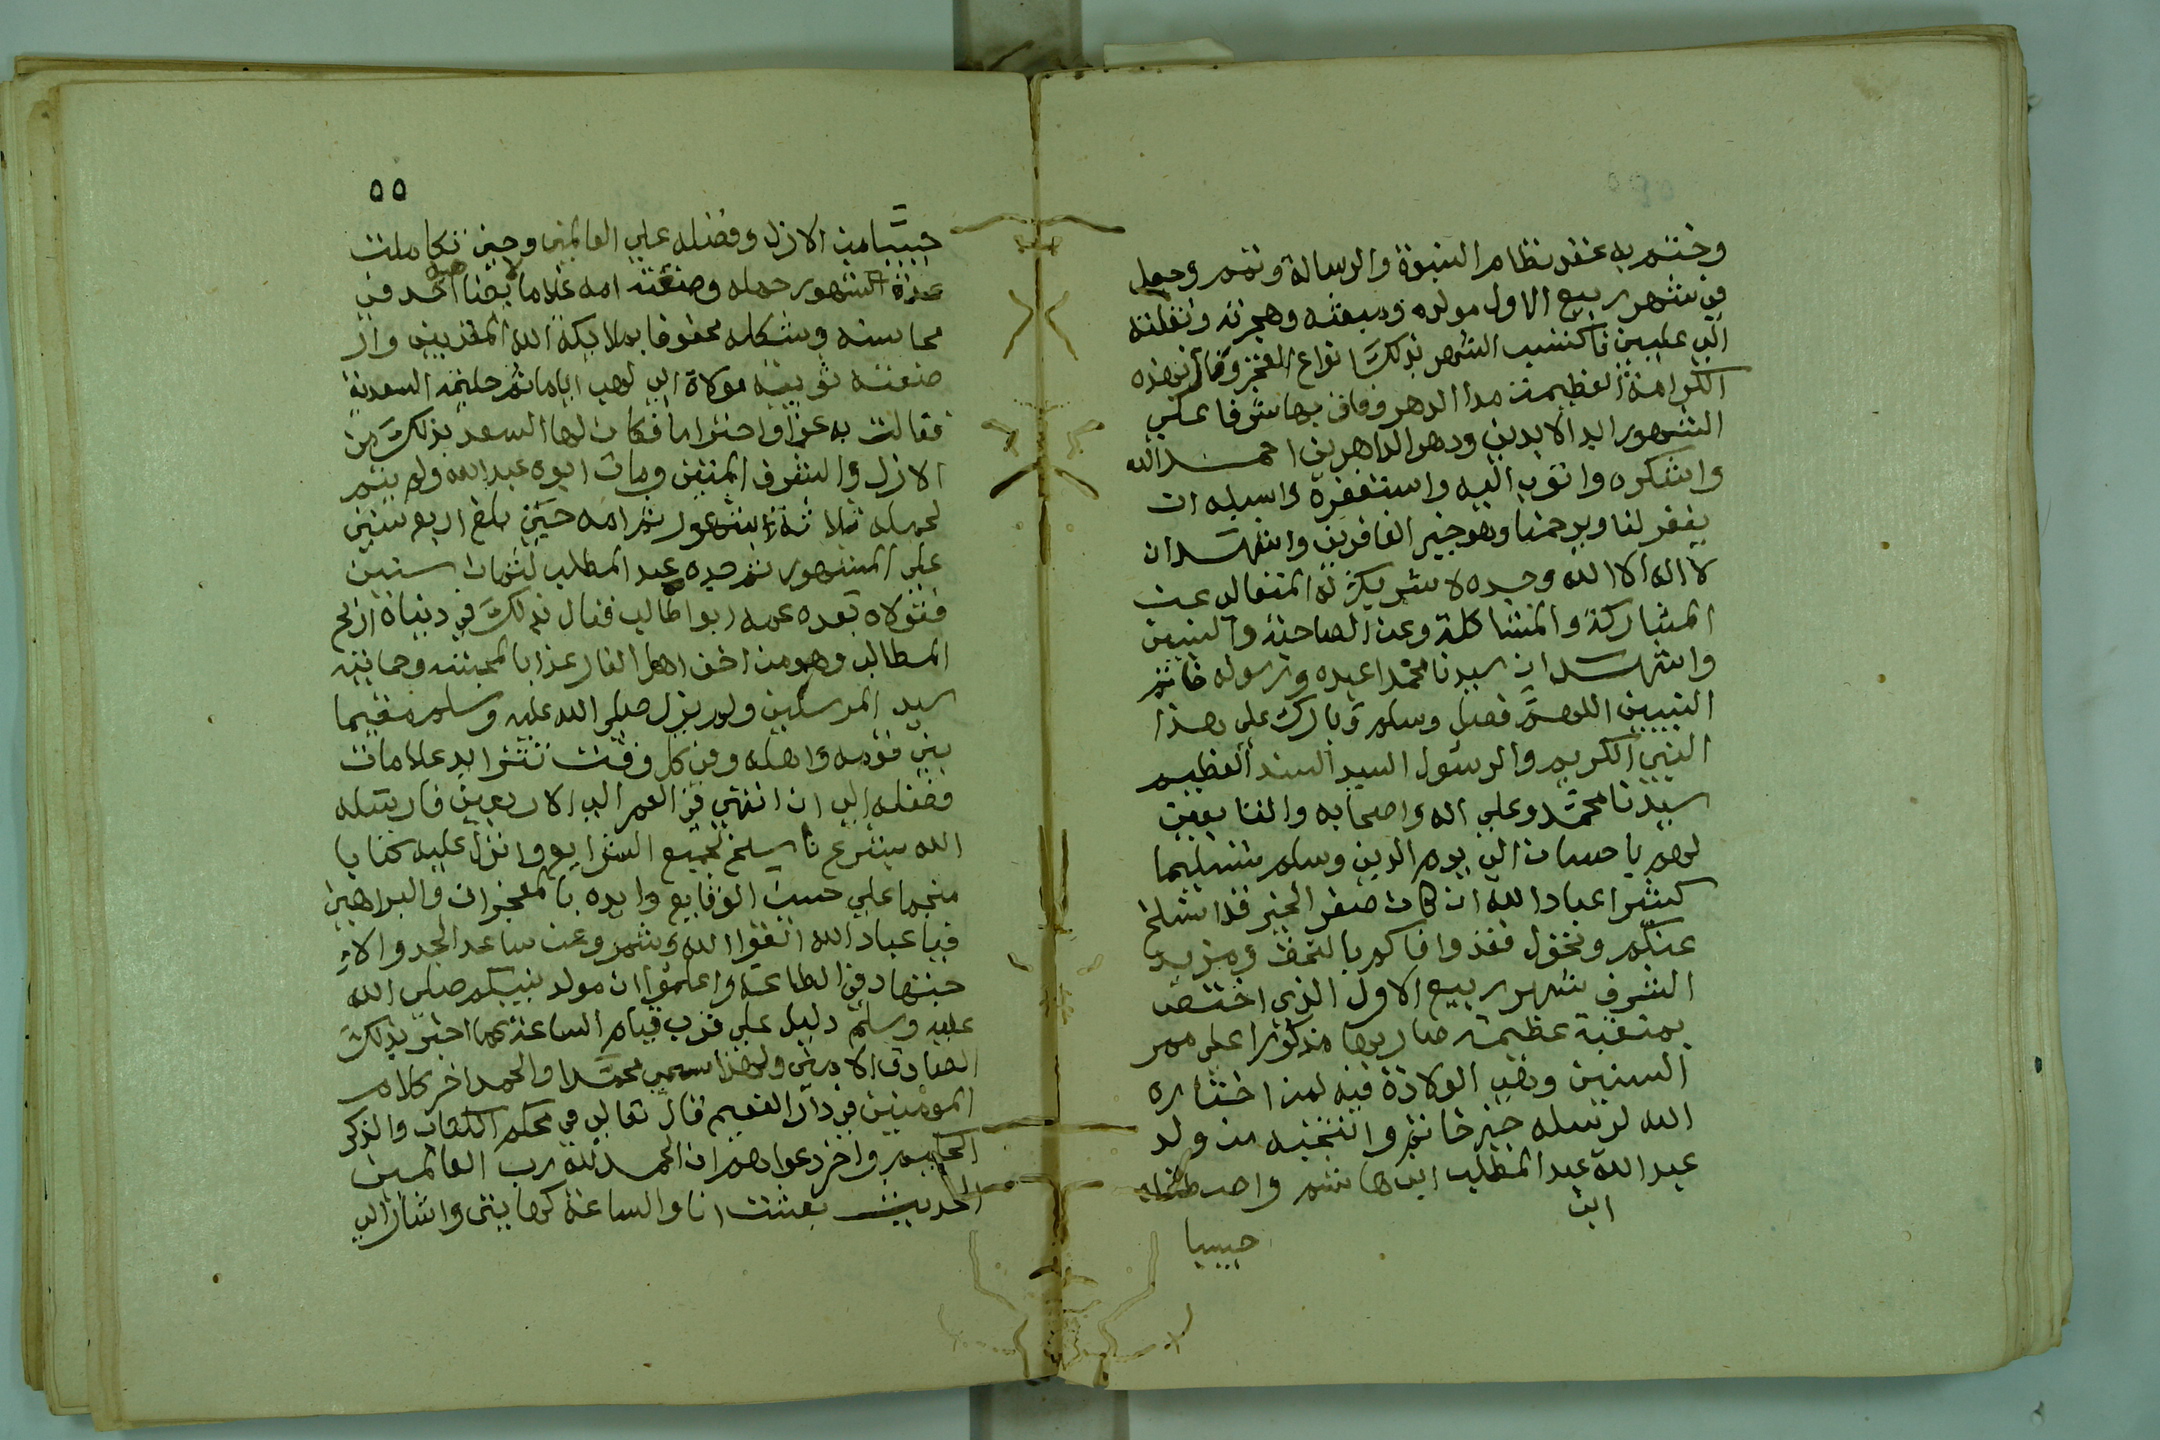 وختم به عقد نظام النبوة والرسالة وتمم وجعل
في شهر ربيع الاول مولده وبعثه وهجرته ونقلته
الي عليين فاكتسب الشهر بذلك انواع الفخر وفاز بهذه
الكرامة العظيمة مدا الدهر وفاق بها شرفا علي
الشهور ابد الابدين ودهر الداهرين احمد الله
واشكره واتوب اليه واستغفره واسيله ان
يغفر لنا ويرحمنا وهو خير الغافرين واشهد ان
لا اله الا الله وحده لا شريك له المتعال عن
المشاركة والمشاكلة وعن الصاحبة والبنين
واشهد ان سيدنا محمدا عبده ورسوله خاتم
النبيين اللهم فصل وسلم وبارك علي هذا
النبي الكريم والرسول السيد السند العظيم
سيدنا محمد وعلي اله واصحابه والتابعين
لهم باحسان الي يوم الدين وسلم تسليما
كثيرا عباد الله ان كان صفر الخير قد انسلخ
عنكم وتحول فقد وافاكم بالتحف ومزيد
الشرف شهر ربيع الاول الذي اختص
بمنقبة عظيمة صار بها مذكورا علي ممر
السنين وهي الولادة فيه لمن اختاره
الله لرسله خير خاتم وانتخبه من ولد
عبد الله عبد المطلب ابن هاشم واصطفاه
ابن
حبيبا
٥٥
حبيبا من الازل وفضله علي العالمين وحين تكاملت
عدة الشهور حمله وضعته امه غلاما لا يضاهيه احد في
محاسنه وشكله محفوفا بملايكة الله المقربين وار
ضعته ثويبة مولاة ابي لهب اياما ثم حليمة السعدية
فنالت به عزا واحتراما فكان لها السعد بذلك من
الازل والشرف المتين ومات ابوه عبد الله ولم يتم
لحمله ثلاثة شهور ثم امه حين بلغ اربع سنين
علي المشهور ثم جده عبد المطلب لثمان سنين
فتولاه بعده عمه ابو اطالب فنال بذلك في دنياه انجح
المطالب وهو من اخف اهل النار عذابا لمحبته وحمايته
سيد المرسلين ولم يزل صلي الله عليه وسلم مقيما
بين قومه واهله وفي كل وقت تتزايد علامات
فضله الي ان انتهي في العمر الي الاربعين فارسله
الله بشرع ناسخ لجميع الشرايع وانزل عليه كتابا
منجما علي حسب الوقايع وايده بالمعجزات والبراهين
فيا عباد الله اتقوا الله وشمروا عن ساعد الجد والا
جتهاد في الطاعة واعلموا ان مولد نبيكم صلي الله
عليه وسلم دليل علي قرب قيام الساعة كما اخبر بذلك
الصادق الامين ولهذا سمي محمدا والحمد اخر كلام
المومنين في دار النعيم قال تعالي في محكم الكتاب والذكر
الحكيم واخر دعواهم ان الحمد لله رب العالمين
الحديث بعثت انا والساعة كهاتين واشار الي